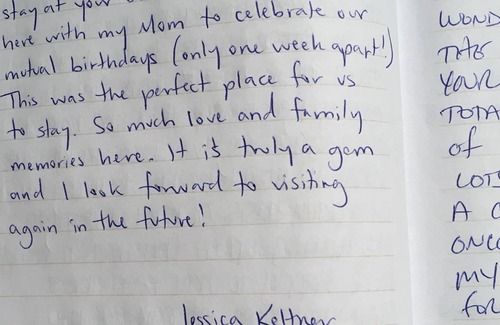 stay at your
here with my Mom to celebrate our
mutual birthdays (only one week apart!)
This was the perfect place for us
to stay. So much love and family
memories here. It is truly a gem
and I look forward to visiting
again in the future!
Jessica Keltner
WOND
THE
YOUR
TOTA
of
LOTS
A
ONCE
MY
for